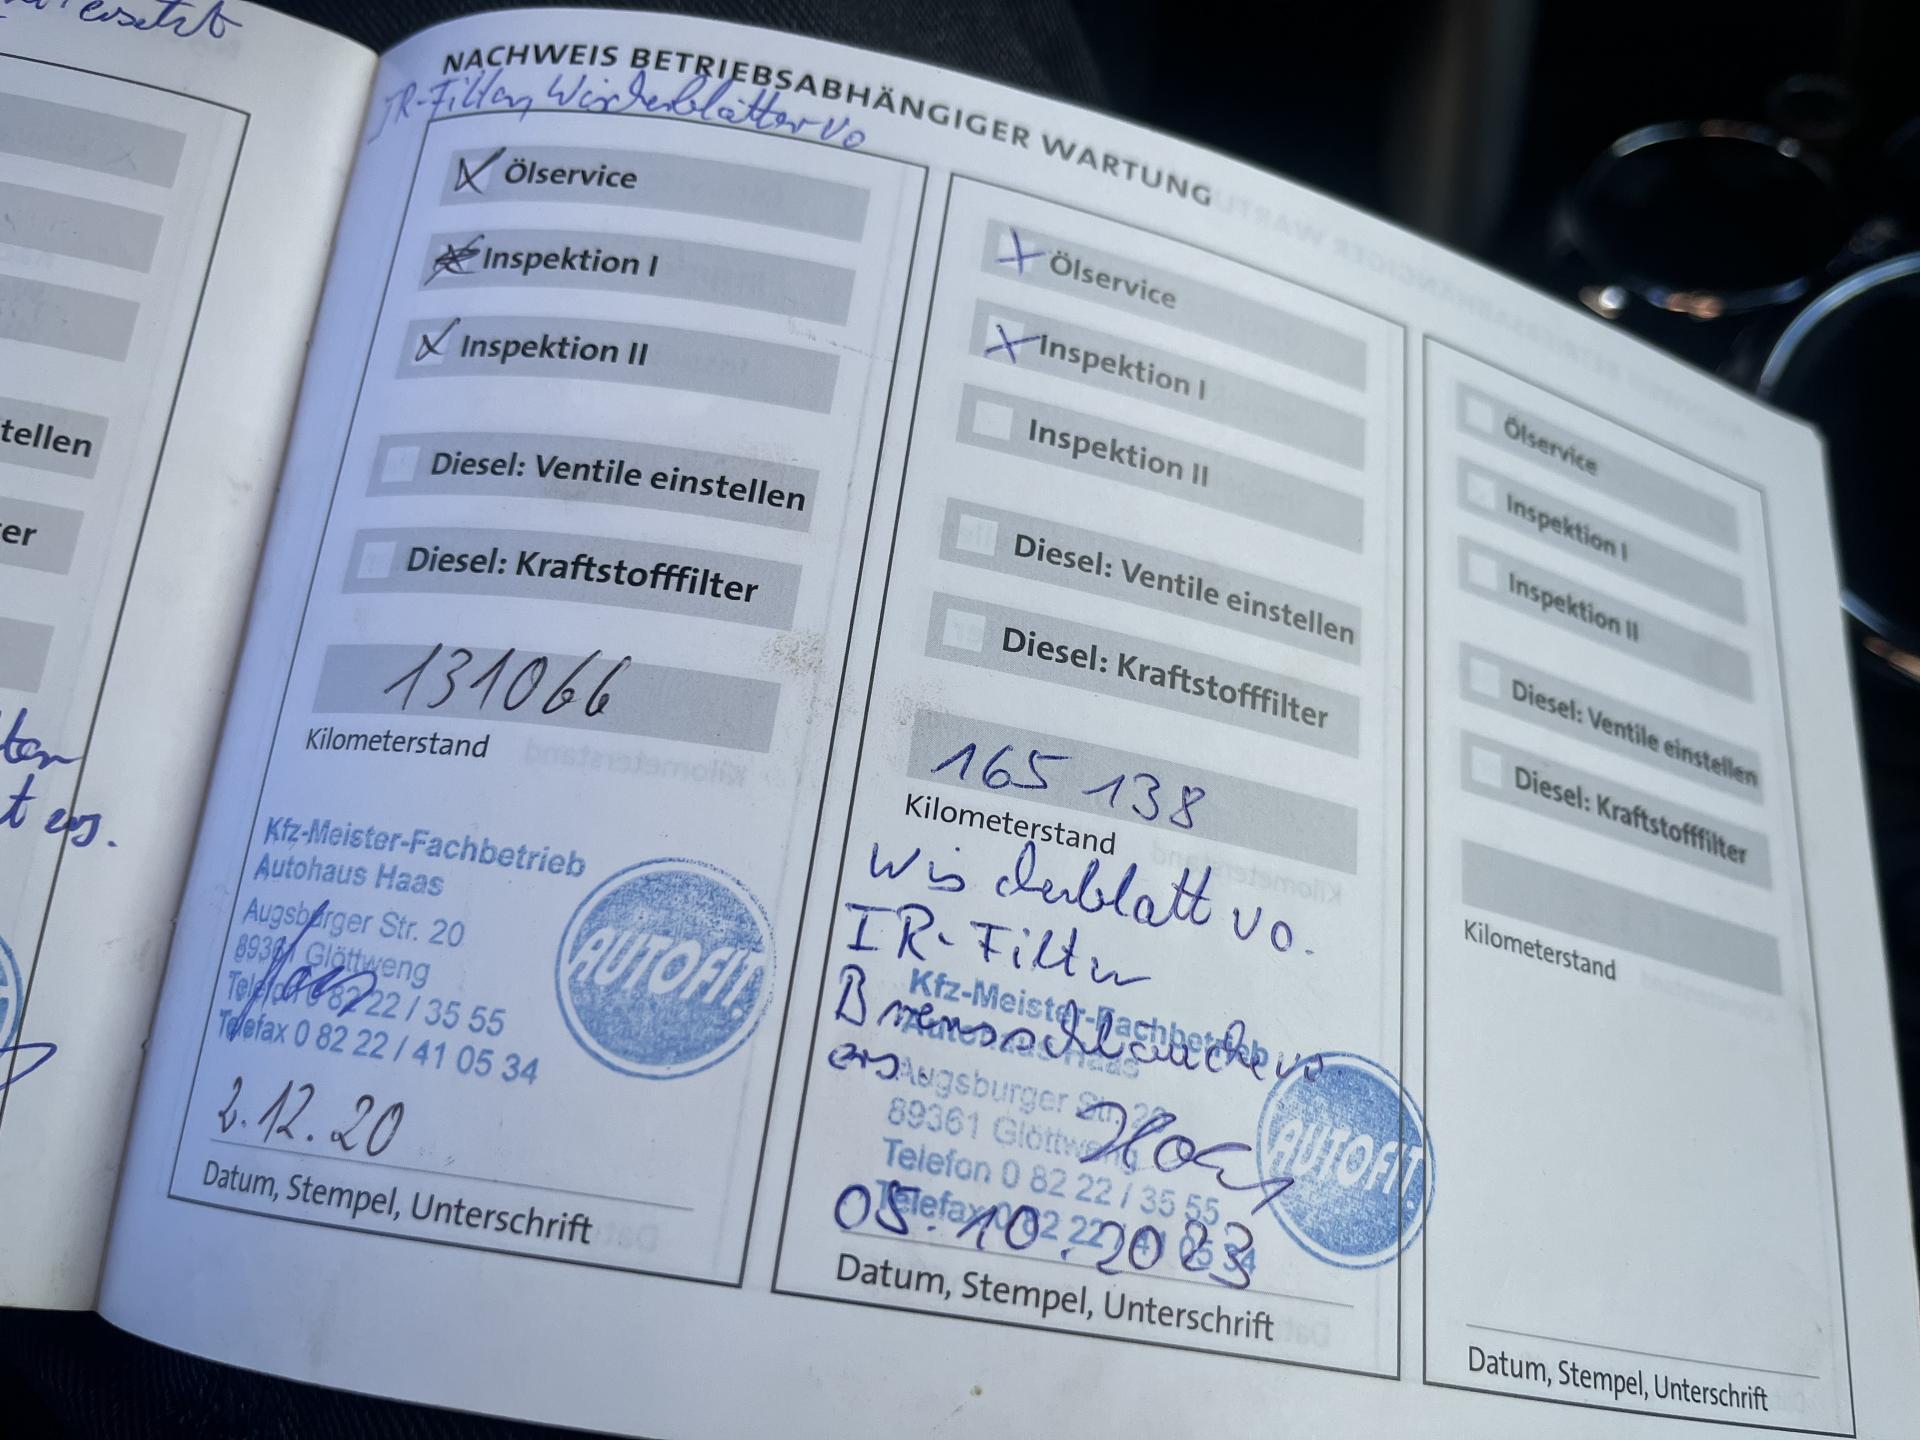 ersetzt
tellen
er
ten
t ers.
NACHWEIS BETRIEBSABHÄNGIGER WARTUNG
IR-Filter, Wischerblätter vo
Ölservice
Inspektion I
Inspektion II
Diesel: Ventile einstellen
Diesel: Kraftstofffilter
131066
Kilometerstand
Kfz-Meister-Fachbetrieb
Autohaus Haas
Augsburger Str. 20
89361 Glöttweng
Telefon 0 82 22 / 35 55
Telefax 0 82 22 / 41 05 34
AUTOFIT
2.12.20
Datum, Stempel, Unterschrift
Ölservice
Inspektion I
Inspektion II
Diesel: Ventile einstellen
Diesel: Kraftstofffilter
165 138
Kilometerstand
Wischerblatt vo.
IR-Filter
Bremsschläuche vo.
ers.
Kfz-Meister-Fachbetrieb
Autohaus Haas
Augsburger Str. 20
89361 Glöttweng
Telefon 0 82 22 / 35 55
Telefax 0 82 22 / 41 05 34
AUTOFIT
05.10.2023
Datum, Stempel, Unterschrift
Ölservice
Inspektion I
Inspektion II
Diesel: Ventile einstellen
Diesel: Kraftstofffilter
Kilometerstand
Datum, Stempel, Unterschrift